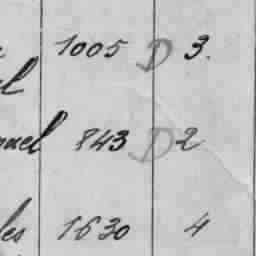 l 1005 D 3.
uel 843 D 2
les 1630 4